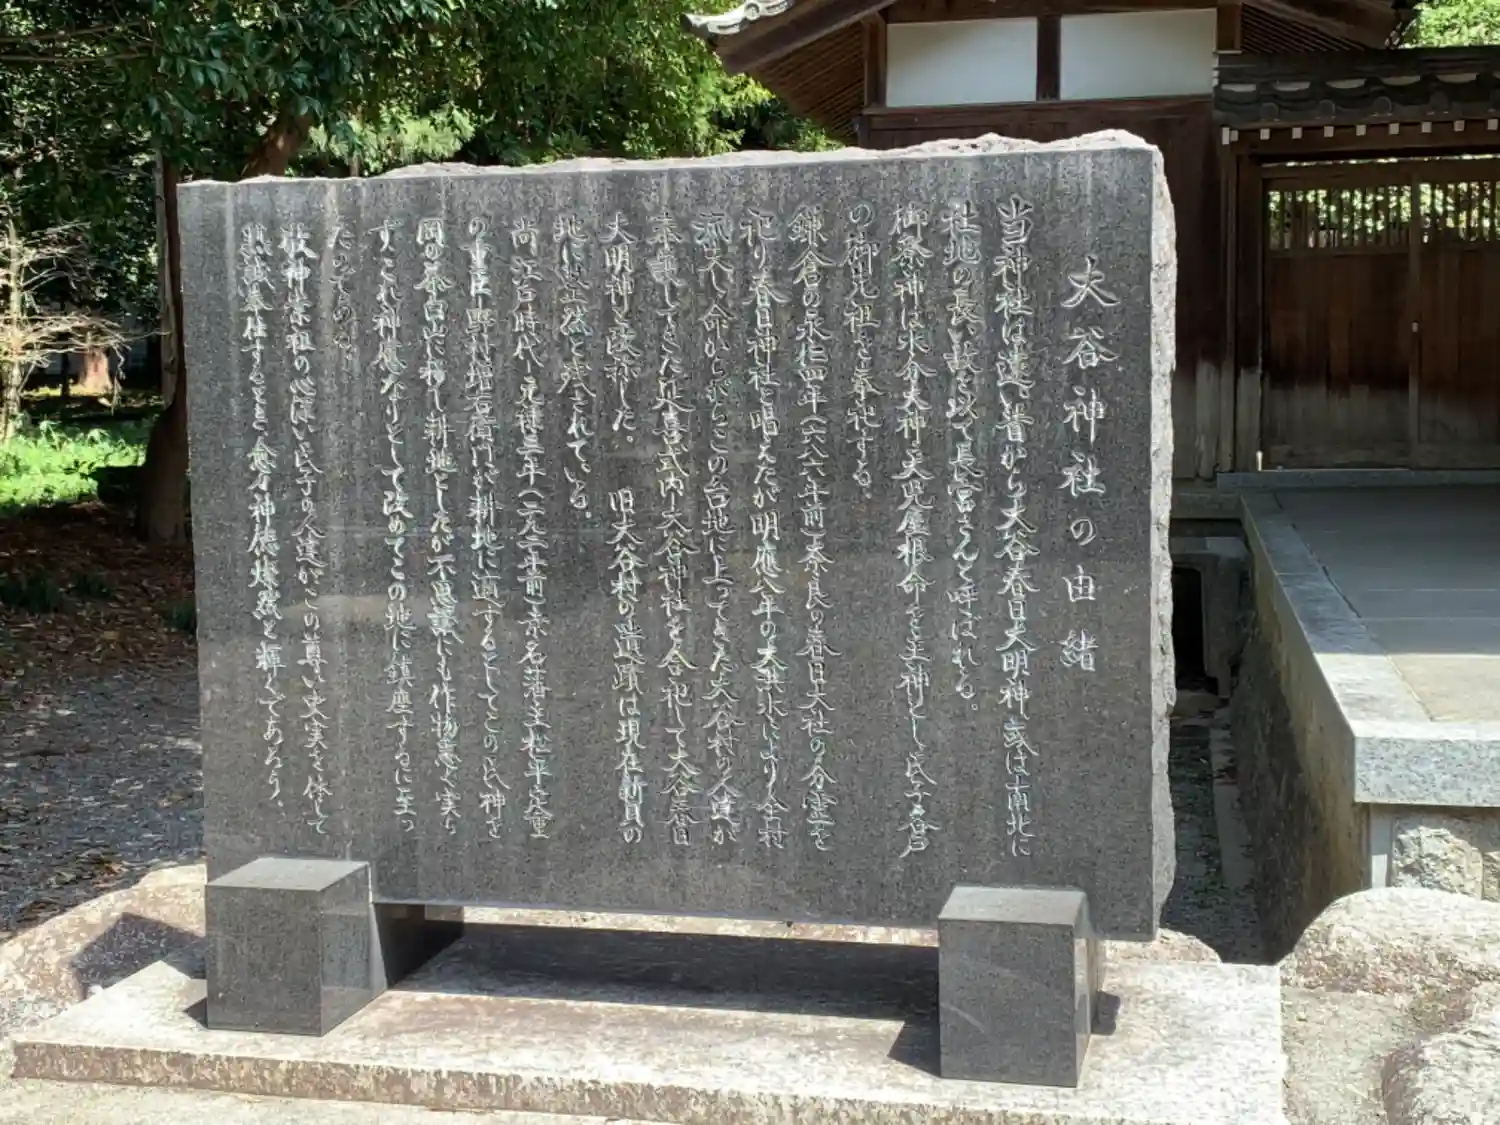 大谷神社の由緒
当神社は遠い昔から大谷春日大明神或は南北に
社地の長い故を以て長宮さんと呼ばれる。
御祭神は水分大神天児屋根命を主神とし氏子各戸
の御先祖を奉祀する。
鎌倉の永仁四年(六八六年前)奈良の春日大社の分霊を
祀り春日神社と唱えたが明應八年の大洪水により全村
流失し命からがらこの台地に上ってきた大谷村の人達が
奉護してきた延喜式内大谷神社を合祀して大谷春日
大明神と改称した。 旧大谷村の遺蹟は現在新貝の
地に整然と残されている。
尚江戸時代元禄三年(二九二年前)桑名藩主松平定重
の重臣野村増右衛門が耕地に適するとしてこの氏神を
岡の茶臼山に移し耕地としたが不思議にも作物悪く実ら
ずこれ神慮なりとして改めてこの地に鎮座するに至っ
たのである。
敬神崇祖の念深い氏子の人達がこの尊い史実を体して
熱誠奉仕するとき愈々神徳燦然と輝くであろう、